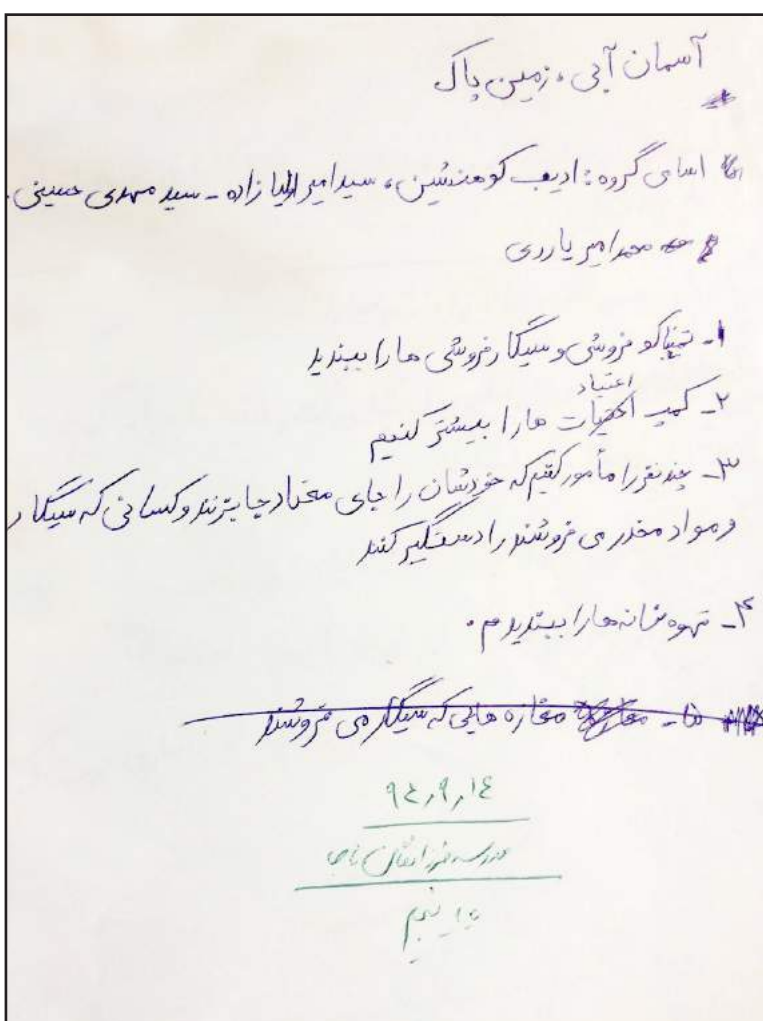 آسمان آبی، زمین پاک
اسامی گروه: ادیب کوهنشین، سیدامیر اولیا زاده - سید مهدی حسینی.
محمدامیر یاردی
۱- تنباکو فروشی و سیگار فروشی ها را ببندید
اعتیاد
۲- کمپ ها را بیشتر کنیم
۳- چند نفر را مأمور کنیم که خودشان را جای معتاد جا بزنند و کسانی که سیگار
و مواد مخدر می فروشند را دستگیر کنند
۴- قهوه خانه ها را ببندیدم.
۵- مغازه هایی که سیگار می فروشند
۹٤٫۹٫۱٤
مدرسه فرزانگان ناجا
پایه پنجم